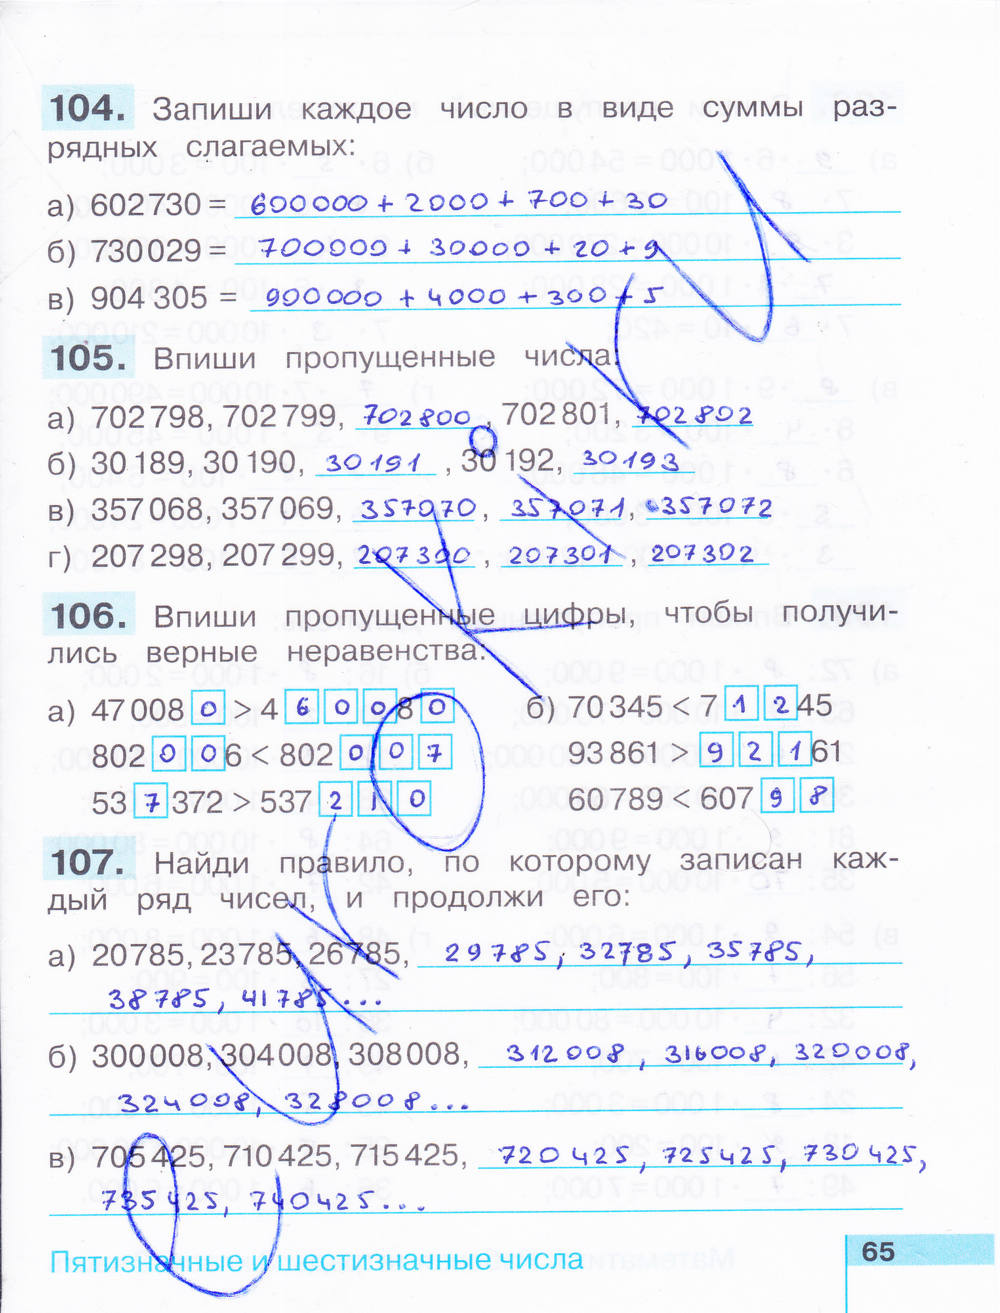 104. Запиши каждое число в виде суммы раз-
рядных слагаемых:
а) 602730 = 600000 + 2000 + 700 + 30
б) 730029 = 700000 + 30000 + 20 + 9
в) 904305 = 900000 + 4000 + 300 + 5
105. Впиши пропущенные числа:
а) 702798, 702799, 702800, 702801, 702802
б) 30189, 30190, 30191, 30192, 30193
в) 357068, 357069, 357070, 357071, 357072
г) 207298, 207299, 207300, 207301, 207302
106. Впиши пропущенные цифры, чтобы получи-
лись верные неравенства:
а) 47008 0 > 4 6 0 0 8 0 б) 70345 < 7 1 2 45
802 0 0 6 < 802 0 0 7 93861 > 9 2 1 61
53 7 372 > 537 2 1 0 60789 < 607 9 8
107. Найди правило, по которому записан каж-
дый ряд чисел, и продолжи его:
а) 20785, 23785, 26785, 29785, 32785, 35785,
38785, 41785...
б) 300008, 304008, 308008, 312008, 316008, 320008,
324008, 328008...
в) 705425, 710425, 715425, 720425, 725425, 730425,
735425, 740425...
Пятизначные и шестизначные числа 65